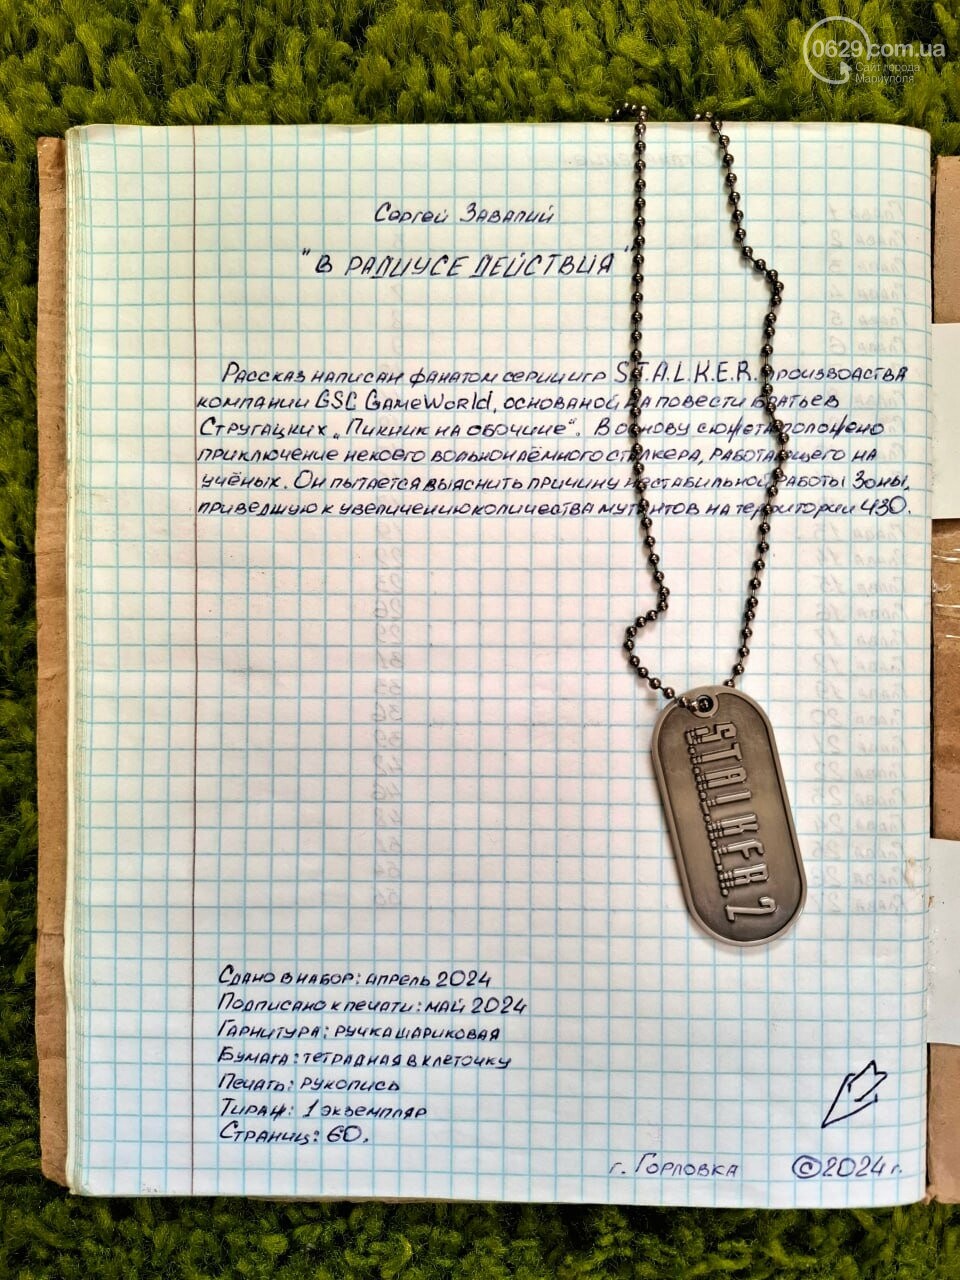 0629.com.ua
Сайт города
Мариуполя
Сергей Завалий
"В РАДИУСЕ ДЕЙСТВИЯ"
Рассказ написан фанатом серии игр S.T.A.L.K.E.R. производства
компании GSC GameWorld, основаной на повести братьев
Стругацких „Пикник на обочине". В основу сюжета положено
приключение некоего вольнонаёмного сталкера, работающего на
учёных. Он пытается выяснить причину нестабильной работы Зоны,
приведшую к увеличению количества мутантов на территории 430.
STALKER 2
Сдано в набор: апрель 2024
Подписано к печати: май 2024
Гарнитура: ручка шариковая
Бумага: тетрадная в клеточку
Печать: рукопись
Тираж: 1 экземпляр
Страниц: 60.
г. Горловка ©2024 г.